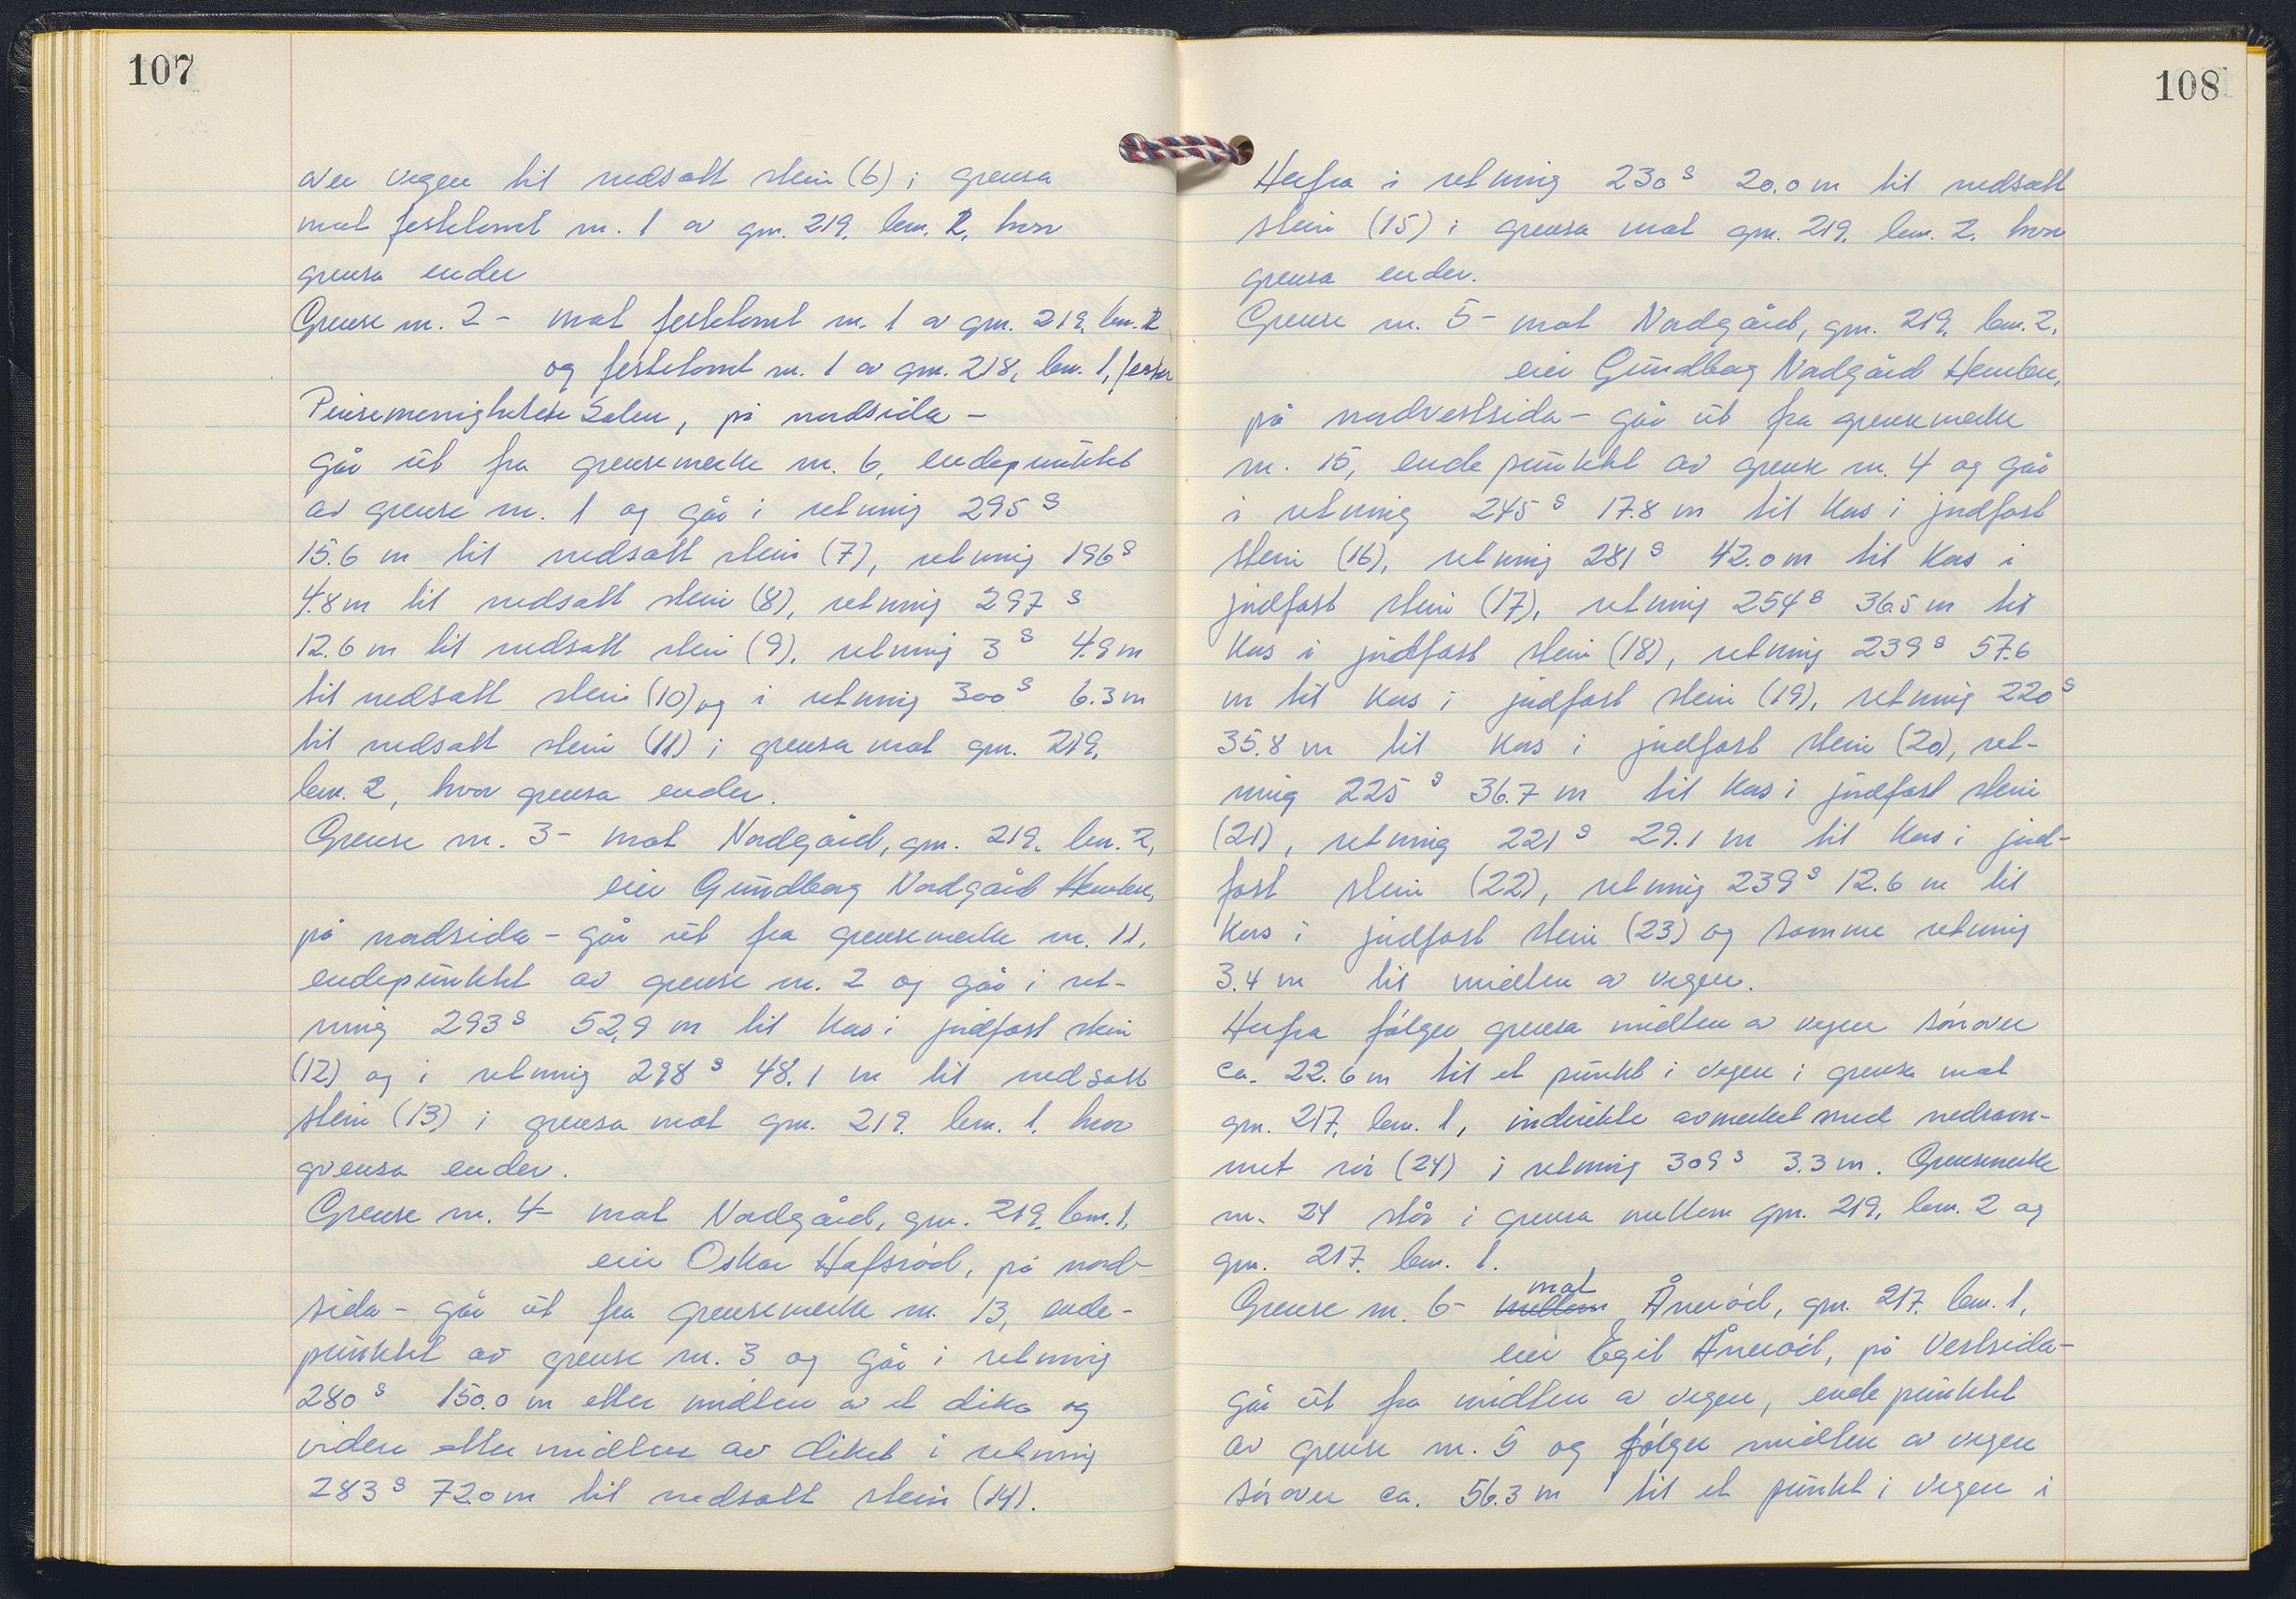 107
over vegen til nedsatt stein (6) i grensa
mot festetomt nr. 1 av gnr. 219, bnr. 2, hvor
grensa ender
Grense nr. 2 - mot festetomt nr. 1 av gnr. 219, bnr. 2
og festetomt nr. 1 av gnr. 218, bnr. 1, fester
Pinsemenigheten Salen, på nordsida -
går ut fra grensemerke nr. 6, endepunktet
av grense nr. 1 og går i retning 295 g
15.6 m til nedsatt stein (7), retning 196 g
4.8 m til nedsatt stein (8), retning 297 g
12.6 m til nedsatt stein (9), retning 3 g 4.9 m
til nedsatt stein (10) og i retning 300 g 6.3 m
til nedsatt stein (11) i grensa mot gnr. 219,
bnr. 2, hvor grensa ender.
Grense nr. 3 - mot Nordgård, gnr. 219, bnr. 2,
eier Gundborg Nordgård Hembre,
på nordsida - går ut fra grensemerke nr. 11,
endepunktet av grense nr. 2 og går i ret-
ning 293 g 52,9 m til kors i jordfast stein
(12) og i retning 298 g 48.1 m til nedsatt
stein (13) i grensa mot gnr. 219, bnr. 1, hvor
grensa ender.
Grense nr. 4 - mot Nordgård, gnr. 219, bnr. 1,
eier Oskar Hafsrød, på nord-
sida - går ut fra grensemerke nr. 13, ende-
punktet av grense nr. 3 og går i retning
280 g 150.0 m etter midten av et dike og
videre etter midten av diket i retning
283 g 72.0 m til nedsatt stein (14).
108
Herfra i retning 230 g 20.0 m til nedsatt
stein (15) i grensa mot gnr. 219, bnr. 2, hvor
grensa ender.
Grense nr. 5 - mot Nordgård, gnr. 219, bnr. 2,
eier Gundborg Nordgård Hembre,
på nordvestsida - går ut fra grensemerke
nr. 15, endepunktet av grense nr. 4 og går
i retning 245 g 17.8 m til kors i jordfast
stein (16), retning 281 g 42.0 m til kors i
jordfast stein (17), retning 254 g 36.5 m til
kors i jordfast stein (18), retning 239 g 57.6
m til kors i jordfast stein (19), retning 220 g
35.8 m til kors i jordfast stein (20), ret-
ning 225 g 36.7 m til kors i jordfast stein
(21), retning 221 g 29.1 m til kors i jord-
fast stein (22), retning 239 g 12.6 m til
kors i jordfast stein (23) og samme retning
3.4 m til midten av vegen.
Herfra følger grensa midten av vegen sørover
ca. 22.6 m til et punkt i vegen i grensa mot
gnr. 217, bnr. 1, indirekte avmerket med nedram-
met rør (24) i retning 309 g 3.3 m. Grensemerke
nr. 24 står i grensa mellom gnr. 219, bnr. 2 og
gnr. 217, bnr. 1.
Grense nr. 6 - mellom mot Ånerød, gnr. 217, bnr. 1,
eier Egil Ånerød, på vestsida -
går ut fra midten av vegen, endepunktet
av grense nr. 5 og følger midten av vegen
sørover ca. 56.3 m til et punkt i vegen i